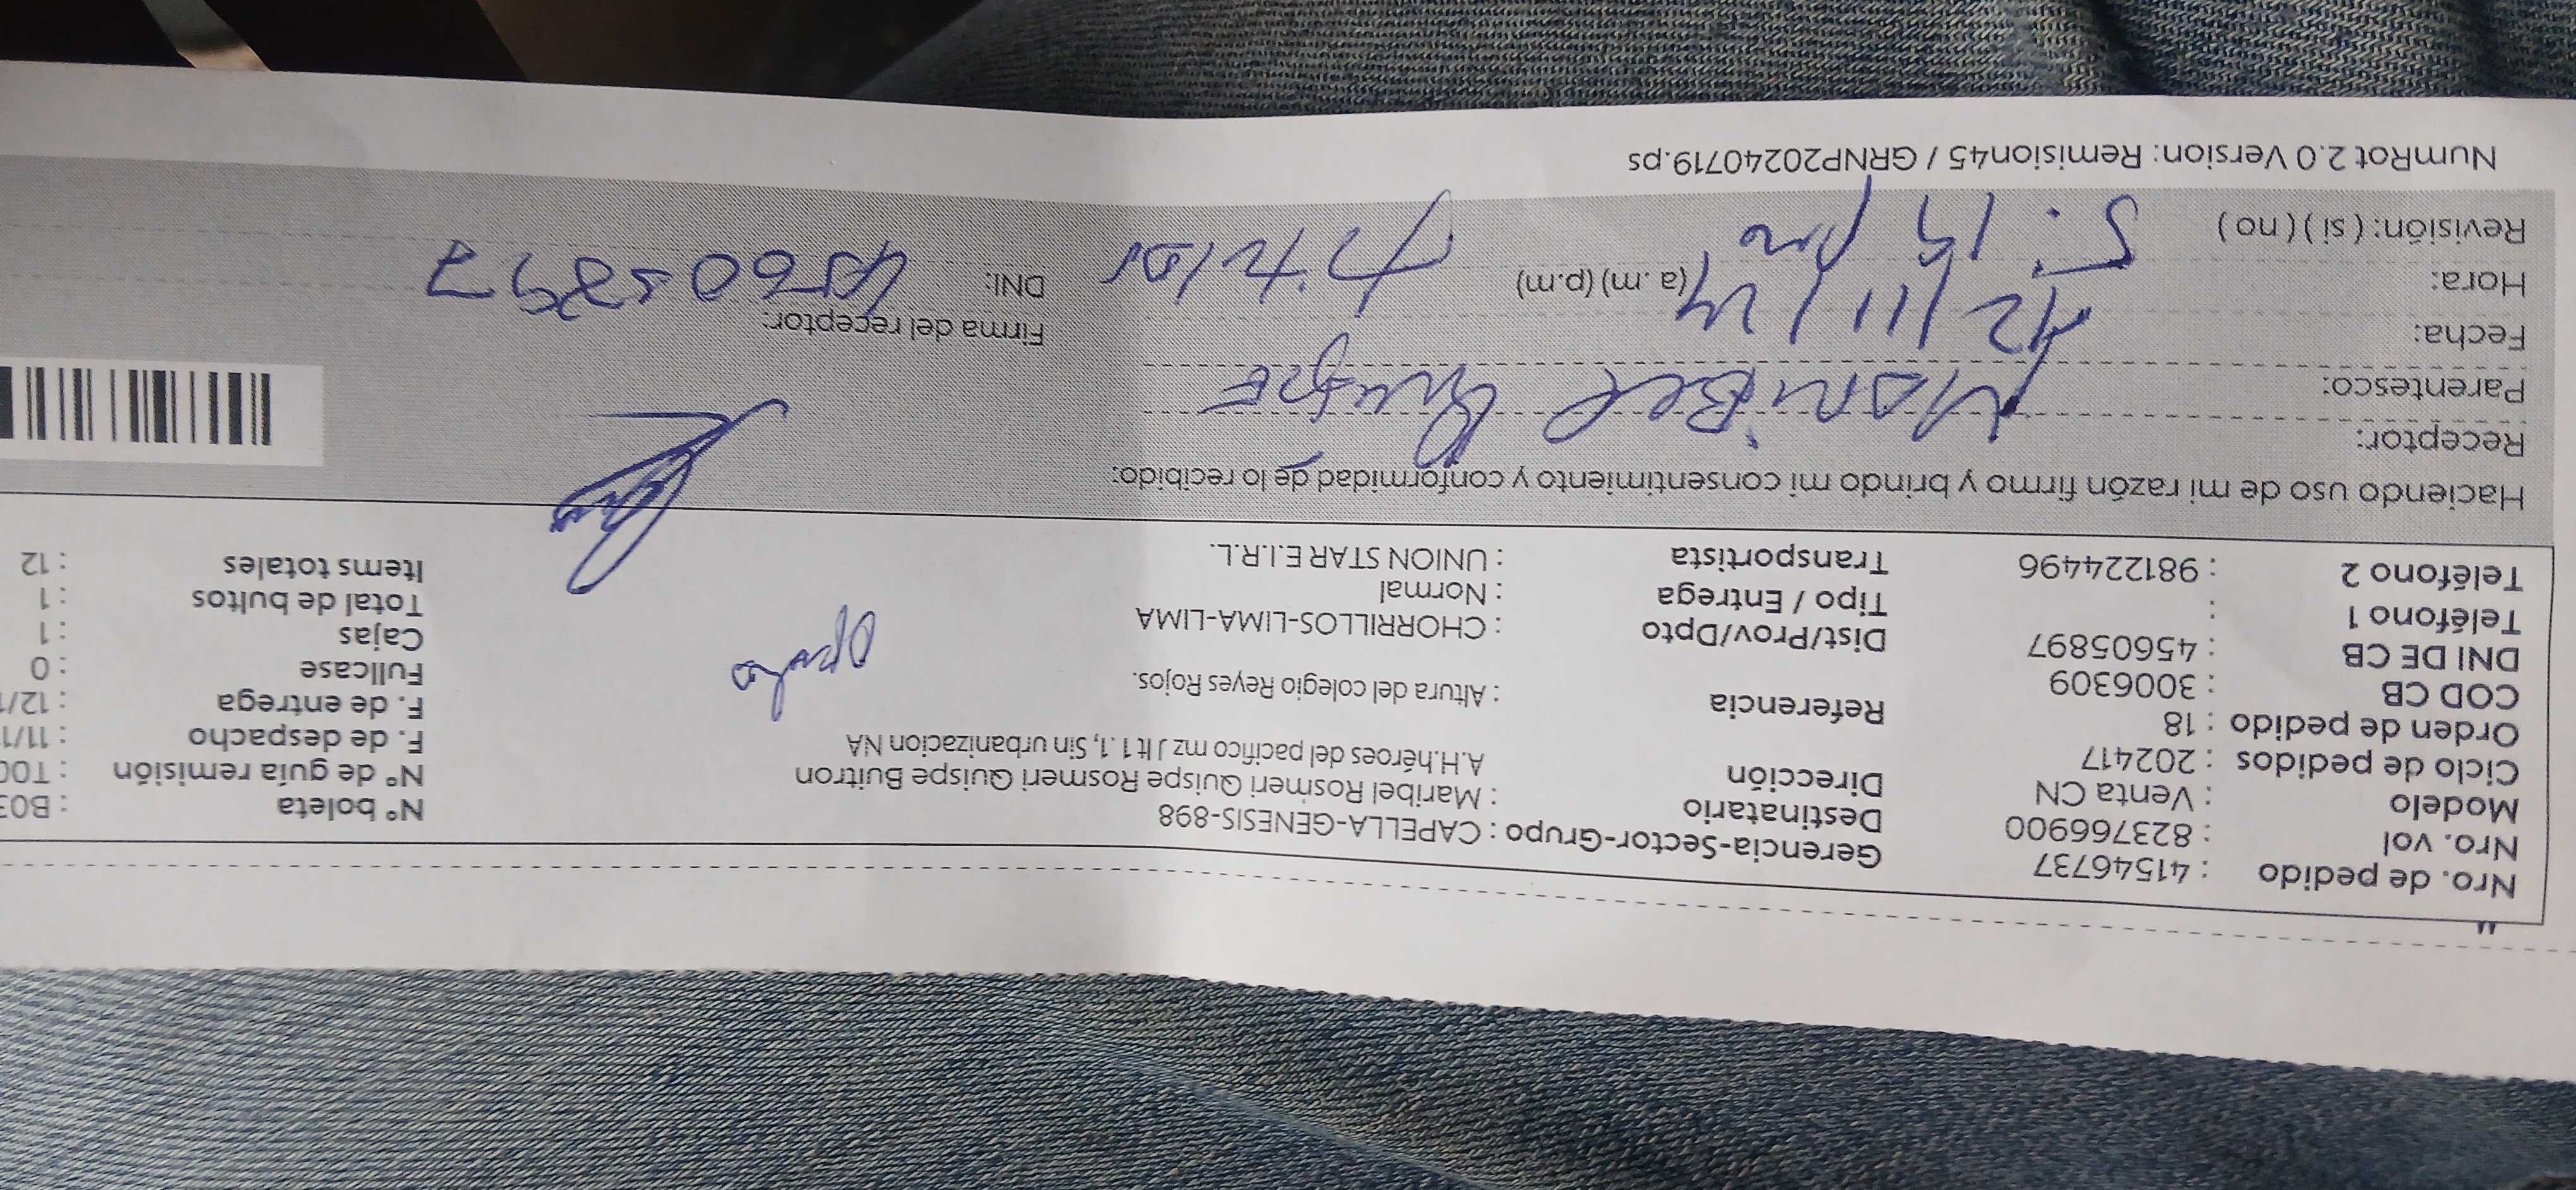 Nro. de pedido : 41546737 Gerencia-Sector-Grupo : CAPELLA-GENESIS-898 N° boleta : B03
Nro. vol : 823766900 Destinatario : Maribel Rosmeri Quispe Rosmeri Quispe Buitron N° de guía remisión : T00
Modelo : Venta CN Dirección A.H.héroes del pacifico mz J lt 1.1, Sin urbanizacion NA F. de despacho : 11/1
Ciclo de pedidos : 202417 F. de entrega : 12/1
Orden de pedido : 18 Referencia : Altura del colegio Reyes Rojos. Fullcase : 0
COD CB : 3006309 Cajas : 1
DNI DE CB : 45605897 Dist/Prov/Dpto : CHORRILLOS-LIMA-LIMA Total de bultos : 1
Teléfono 1 : Tipo / Entrega : Normal Items totales : 12
Teléfono 2 : 981224496 Transportista : UNION STAR E.I.R.L.
Haciendo uso de mi razón firmo y brindo mi consentimiento y conformidad de lo recibido:
Receptor: MariBel Quispe
Parentesco:
Fecha: 12/11/24 Firma del receptor:
Hora: 5:19 pm (a. m) (p.m) titular DNI: 45605897
Revisión: ( si ) ( no )
NumRot 2.0 Version: Remision45 / GRNP20240719.ps